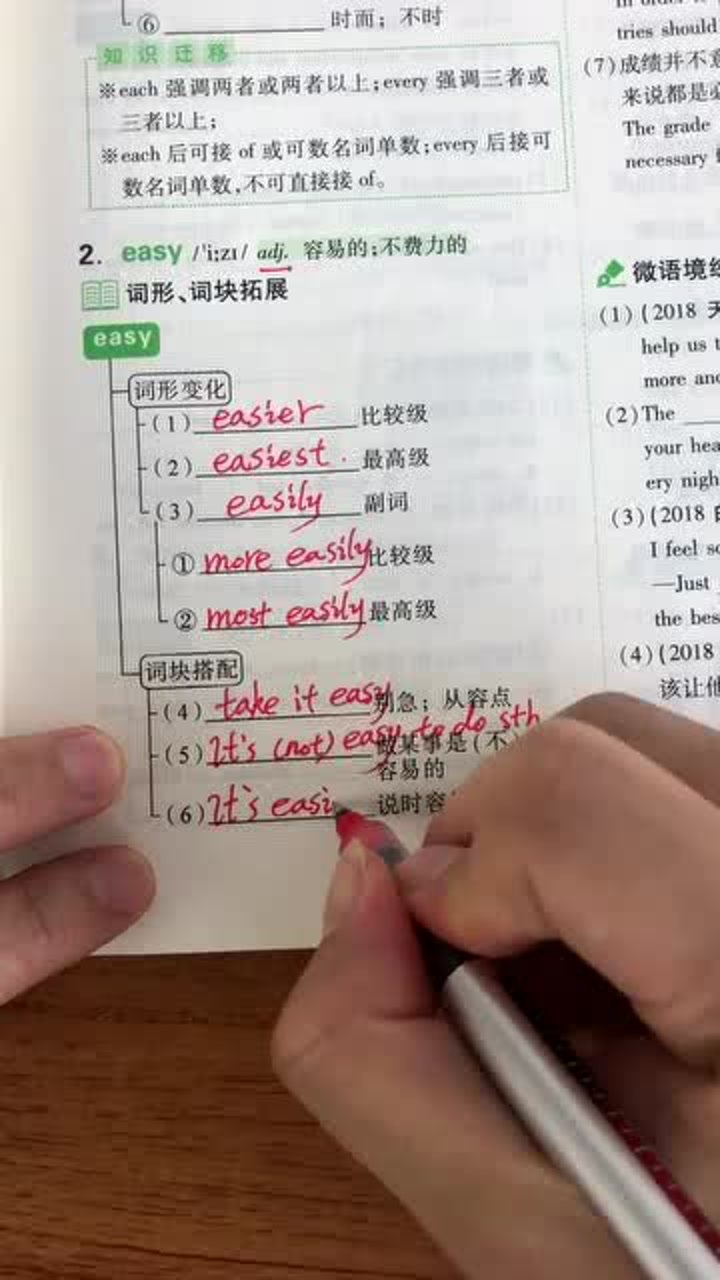 ⑥ 时而；不时
知识迁移
※each 强调两者或两者以上；every 强调三者或
三者以上；
※each 后可接 of 或可数名词单数；every 后接可
数名词单数，不可直接接 of。
2. easy /ˈiːzɪ/ adj. 容易的；不费力的
词形、词块拓展
easy
词形变化
(1) easier 比较级
(2) easiest. 最高级
(3) easily 副词
① more easily 比较级
② most easily 最高级
词块搭配
(4) take it easy 别急；从容点
(5) It's (not) easy to do sth 做某事是(不)
容易的
(6) It's easi 说时容
tries should
(7) 成绩并不意
来说都是必
The grade
necessary
微语境练
(1) (2018 天
help us t
more and
(2) The
your hea
ery nigh
(3) (2018
I feel so
—Just
the bes
(4) (2018
该让他